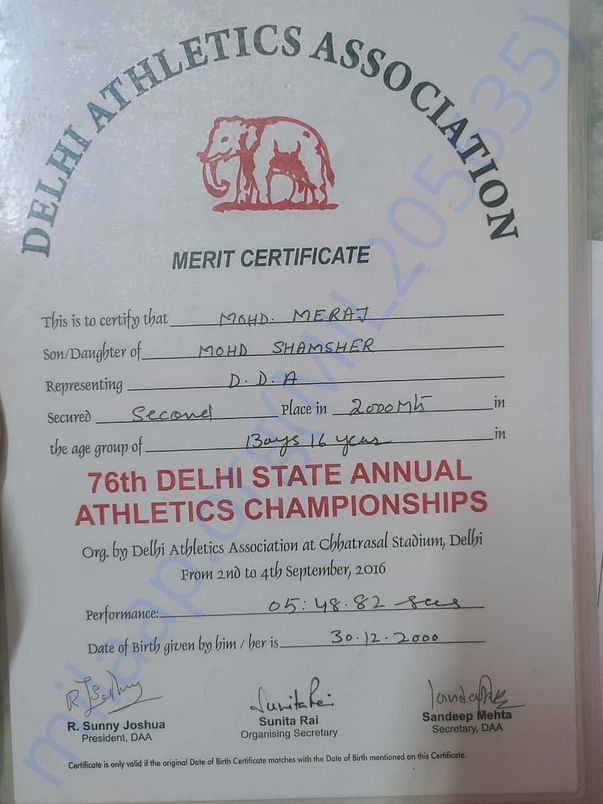 DELHI ATHLETICS ASSOCIATION
MERIT CERTIFICATE
This is to certify that MOHD. MERAJ
Son/Daughter of MOHD SHAMSHER
Representing D.D.A
Secured Second Place in 2000 Mts in
the age group of Boys 16 years in
76th DELHI STATE ANNUAL
ATHLETICS CHAMPIONSHIPS
Org. by Delhi Athletics Association at Chhatrasal Stadium, Delhi
From 2nd to 4th September, 2016
Performance: 05:48.82 secs
Date of Birth given by him / her is 30.12.2000
R. Sunny Joshua
President, DAA
Sunita Rai
Sunita Rai
Organising Secretary
Sandeep Mehta
Secretary, DAA
Certificate is only valid if the original Date of Birth Certificate matches with the Date of Birth mentioned on this Certificate.
milaap.org(MIL205535)